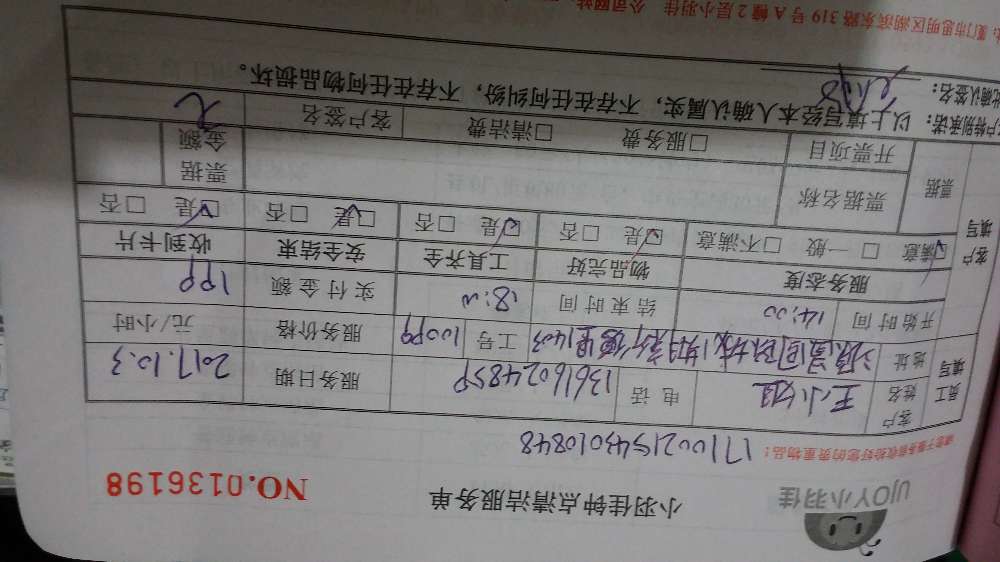 UJOY小羽佳
小羽佳钟点清洁服务单
NO.0136198
请您于服务前收拾好您的贵重物品!
1710021543010848
员工填写
客户姓名 王小姐 电话 服务日期 2017.10.3
地址 工号 10099 服务价格 元/小时
开始时间 14:00 结束时间 18:00 实付金额 199
客户填写
服务态度 物品完好 工具齐全 安全结束 收到卡片
☑满意 □一般 □不满意 ☑是 □否 ☑是 □否 ☑是 □否 ☑是 □否
票据 票据名称 票据金额
开票项目 □服务费 □清洁费 客户签名
户特别承诺:以上填写经本人确认属实,不存在任何纠纷,不存在任何物品损坏。
此确认签名:
厦门市思明区湖滨东路319号A幢2层小羽佳 公司网站